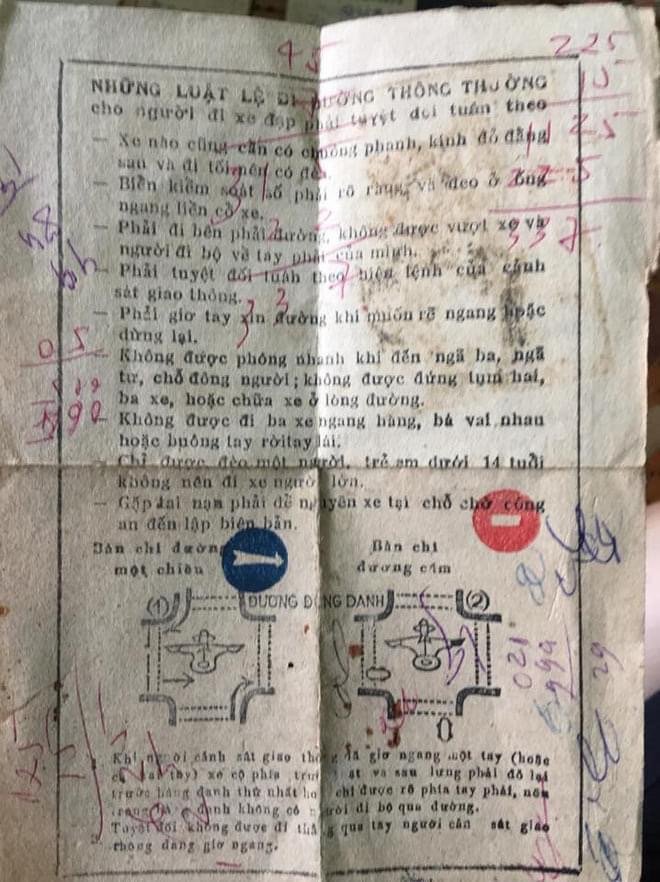 45
225
15
NHỮNG LUẬT LỆ ĐI ĐƯỜNG THÔNG THƯỜNG
cho người đi xe đạp phải tuyệt đối tuân theo
125
— Xe nào cũng cần có chuông phanh, kính đỏ đằng
sau và đi tối nên có đèn.
225
— Biển kiểm soát số phải rõ ràng, và đeo ở ống
ngang liền cổ xe.
337
— Phải đi bên phải đường, không được vượt xe và
người đi bộ về tay phải của mình.
— Phải tuyệt đối tuân theo hiệu lệnh của cảnh
sát giao thông.
— Phải giơ tay xin đường khi muốn rẽ ngang hoặc
dừng lại.
05
— Không được phóng nhanh khi đến ngã ba, ngã
tư, chỗ đông người; không được đứng tụm hai,
ba xe, hoặc chữa xe ở lòng đường.
— Không được đi ba xe ngang hàng, bá vai nhau
hoặc buông tay rời tay lái.
— Chỉ được đèo một người, trẻ em dưới 14 tuổi
không nên đi xe người lớn.
— Gặp tai nạn phải để nguyên xe tại chỗ chờ công
an đến lập biên bản.
Bản chỉ đường
một chiều
Bản chỉ
đường cấm
(1) ĐƯỜNG DÙNG DANH (2)
021
999
29
125
Khi người cảnh sát giao thông đã giơ ngang một tay (hoặc
cả hai tay) xe cộ phía trước mặt và sau lưng phải đỗ lại
trước hàng đanh thứ nhất hoặc chỉ được rẽ phía tay phải, nếu
trong đanh không có người đi bộ qua đường.
Tuyệt đối không được đi thẳng qua tay người cảnh sát giao
thông đang giơ ngang.